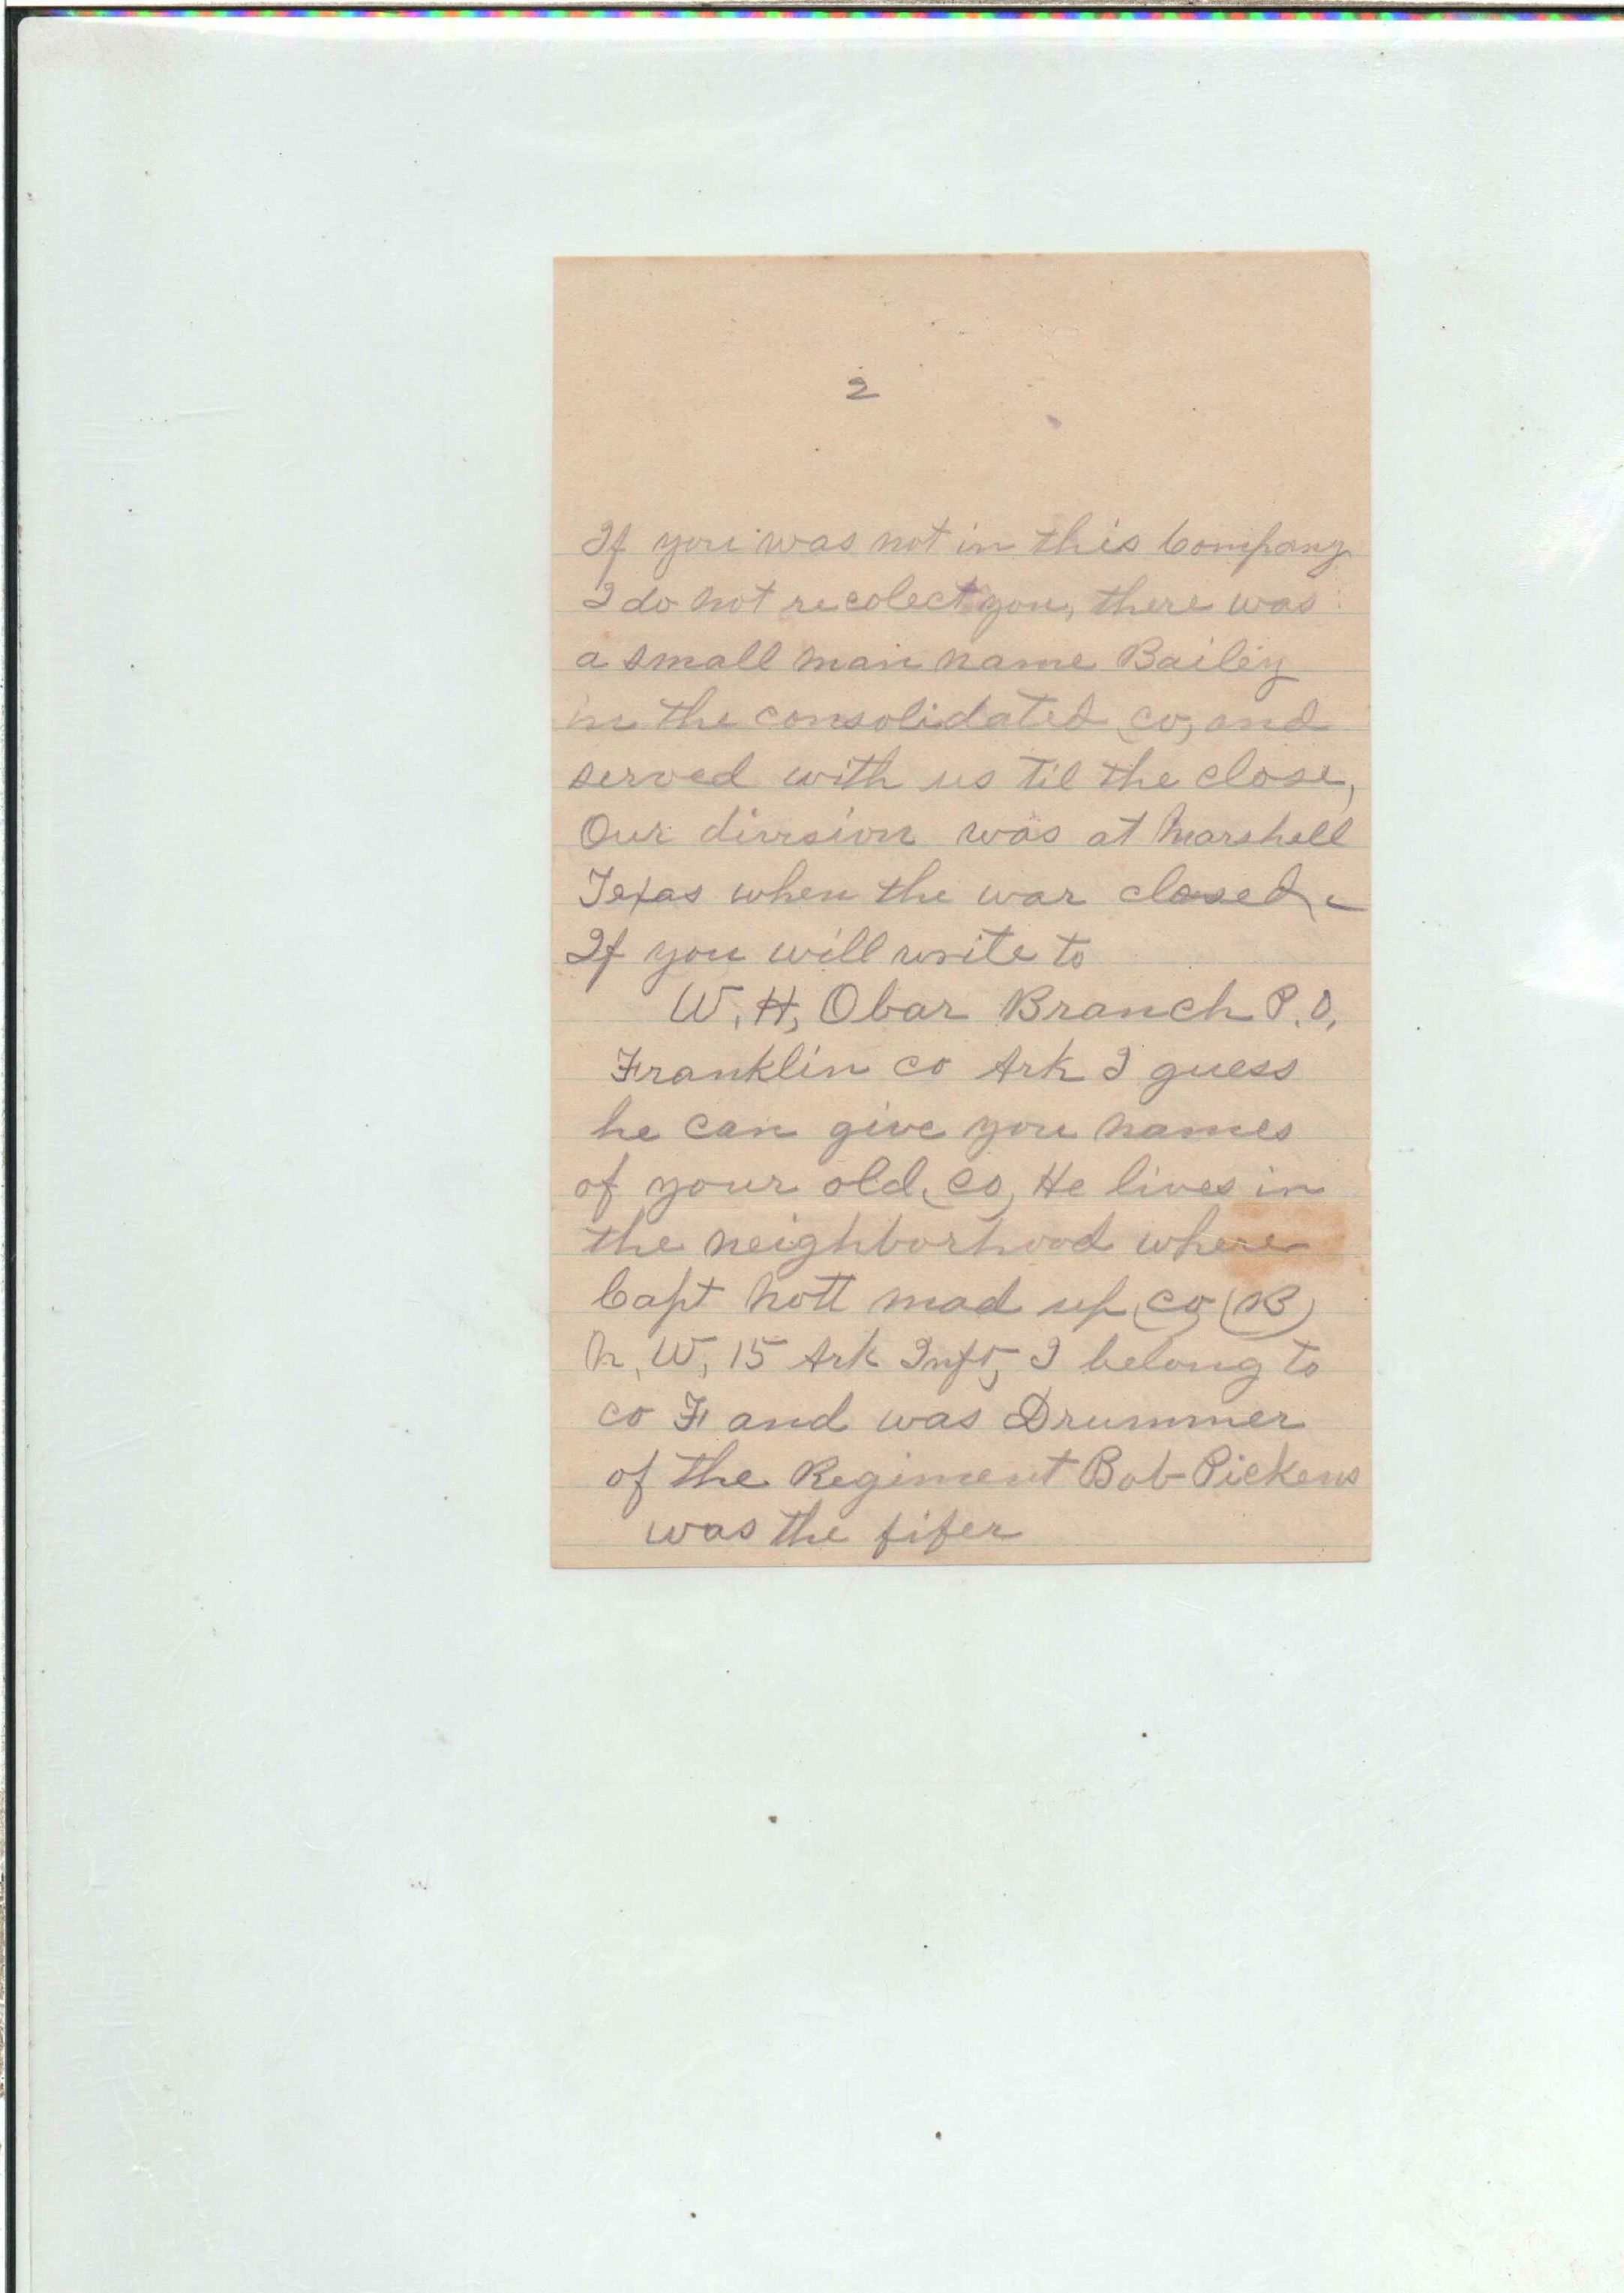 2
If you was not in this Company
I do not recolect you, there was
a small man name Bailey
in the consolidated co, and
served with us til the close,
Our division was at Marshell
Texas when the war closed
If you will write to
W, H, Obar Branch P. O,
Franklin co Ark I guess
he can give you names
of your old co, He lives in
the neighborhood where
Capt Nott mad up co (B)
N, W, 15 Ark Inft, I belong to
co F and was Drummer
of the Regiment Bob Pickens
was the fifer